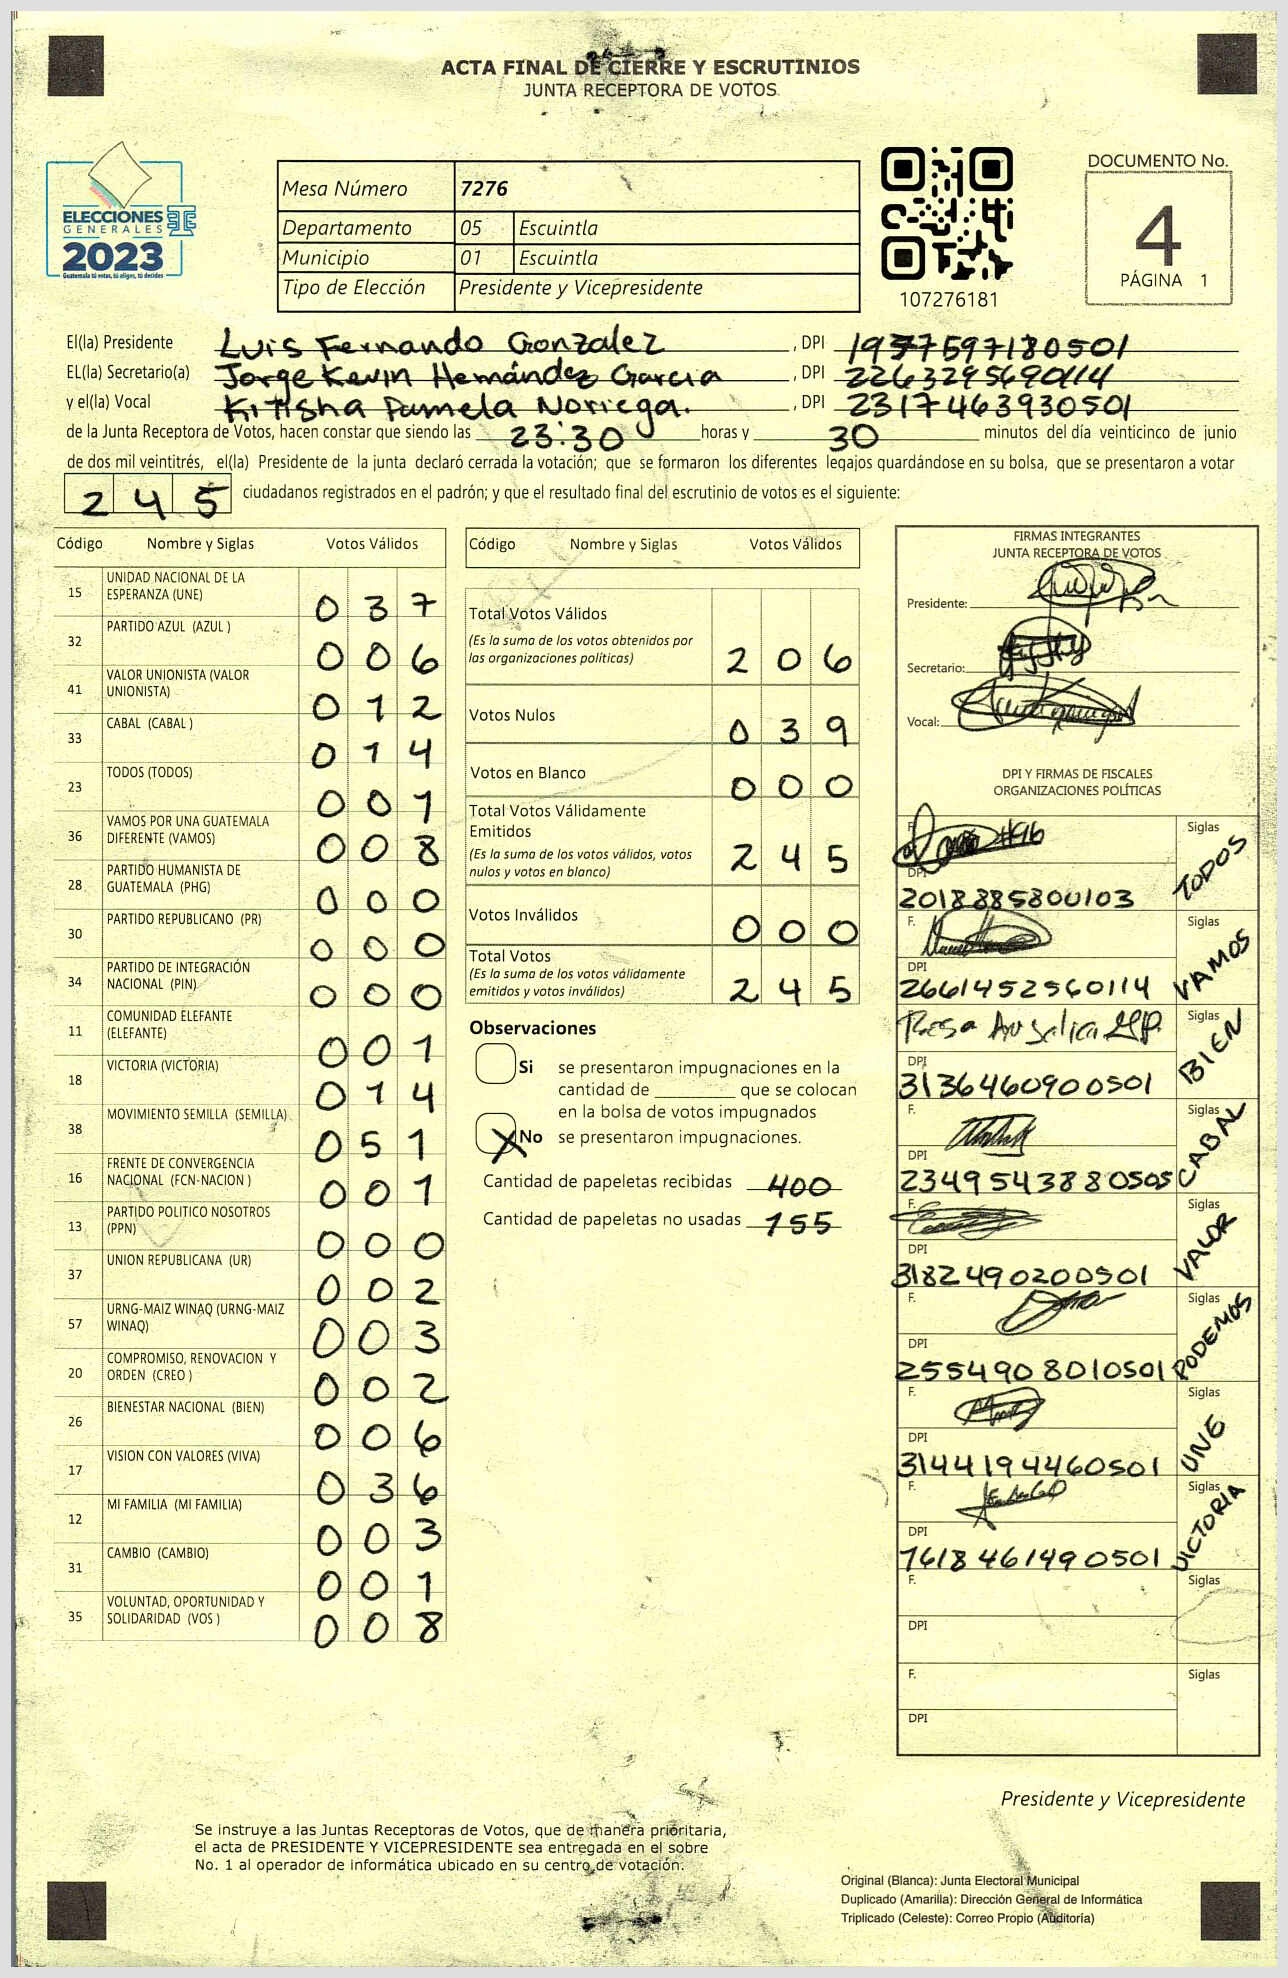 ACTA FINAL DE CIERRE Y ESCRUTINIOS
JUNTA RECEPTORA DE VOTOS
ELECCIONES
GENERALES
2023
Guatemala tú votas, tú eliges, tú decides
Mesa Número 7276
Departamento 05 Escuintla
Municipio 01 Escuintla
Tipo de Elección Presidente y Vicepresidente
107276181
DOCUMENTO No.
4
PÁGINA 1
El(la) Presidente Luis Fernando Gonzalez, DPI 1977597180501
EL(la) Secretario(a) Jorge Kevin Hernández Garcia, DPI 2263295690114
y el(la) Vocal Kitisha Pamela Noriega., DPI 2317463930501
de la Junta Receptora de Votos, hacen constar que siendo las 23:30 horas y 30 minutos del día veinticinco de junio
de dos mil veintitrés, el(la) Presidente de la junta declaró cerrada la votación; que se formaron los diferentes legajos guardándose en su bolsa, que se presentaron a votar
245 ciudadanos registrados en el padrón; y que el resultado final del escrutinio de votos es el siguiente:
Código Nombre y Siglas Votos Válidos
15 UNIDAD NACIONAL DE LA ESPERANZA (UNE) 037
32 PARTIDO AZUL (AZUL ) 006
41 VALOR UNIONISTA (VALOR UNIONISTA) 012
33 CABAL (CABAL ) 014
23 TODOS (TODOS) 001
36 VAMOS POR UNA GUATEMALA DIFERENTE (VAMOS) 008
28 PARTIDO HUMANISTA DE GUATEMALA (PHG) 000
30 PARTIDO REPUBLICANO (PR) 000
34 PARTIDO DE INTEGRACIÓN NACIONAL (PIN) 000
11 COMUNIDAD ELEFANTE (ELEFANTE) 001
18 VICTORIA (VICTORIA) 014
38 MOVIMIENTO SEMILLA (SEMILLA) 051
16 FRENTE DE CONVERGENCIA NACIONAL (FCN-NACION ) 001
13 PARTIDO POLITICO NOSOTROS (PPN) 000
37 UNION REPUBLICANA (UR) 002
57 URNG-MAIZ WINAQ (URNG-MAIZ WINAQ) 003
20 COMPROMISO, RENOVACION Y ORDEN (CREO ) 002
26 BIENESTAR NACIONAL (BIEN) 006
17 VISION CON VALORES (VIVA) 036
12 MI FAMILIA (MI FAMILIA) 003
31 CAMBIO (CAMBIO) 001
35 VOLUNTAD, OPORTUNIDAD Y SOLIDARIDAD (VOS ) 008
Código Nombre y Siglas Votos Válidos
Total Votos Válidos
(Es la suma de los votos obtenidos por
las organizaciones políticas) 206
Votos Nulos 039
Votos en Blanco 000
Total Votos Válidamente
Emitidos
(Es la suma de los votos válidos, votos
nulos y votos en blanco) 245
Votos Inválidos 000
Total Votos
(Es la suma de los votos válidamente
emitidos y votos inválidos) 245
Observaciones
Si se presentaron impugnaciones en la
cantidad de ________ que se colocan
en la bolsa de votos impugnados
X No se presentaron impugnaciones.
Cantidad de papeletas recibidas 400
Cantidad de papeletas no usadas 155
FIRMAS INTEGRANTES
JUNTA RECEPTORA DE VOTOS
Presidente:
Secretario:
Vocal:
DPI Y FIRMAS DE FISCALES
ORGANIZACIONES POLÍTICAS
F. Siglas TODOS
DPI 2018885800103
F. Siglas VAMOS
DPI 2661452560114
Rosa Angelica Siglas BIEN
DPI 3136460900501
F. Siglas CABAL
DPI 2349543880505
F. Siglas VALOR
DPI 3182490200501
F. Siglas PODEMOS
DPI 2554908010501
F. Siglas UNE
DPI 3144194460501
F. Siglas VICTORIA
DPI 1618461490501
F. Siglas
DPI
F. Siglas
DPI
Presidente y Vicepresidente
Se instruye a las Juntas Receptoras de Votos, que de manera prioritaria,
el acta de PRESIDENTE Y VICEPRESIDENTE sea entregada en el sobre
No. 1 al operador de informática ubicado en su centro de votación.
Original (Blanca): Junta Electoral Municipal
Duplicado (Amarilla): Dirección General de Informática
Triplicado (Celeste): Correo Propio (Auditoría)